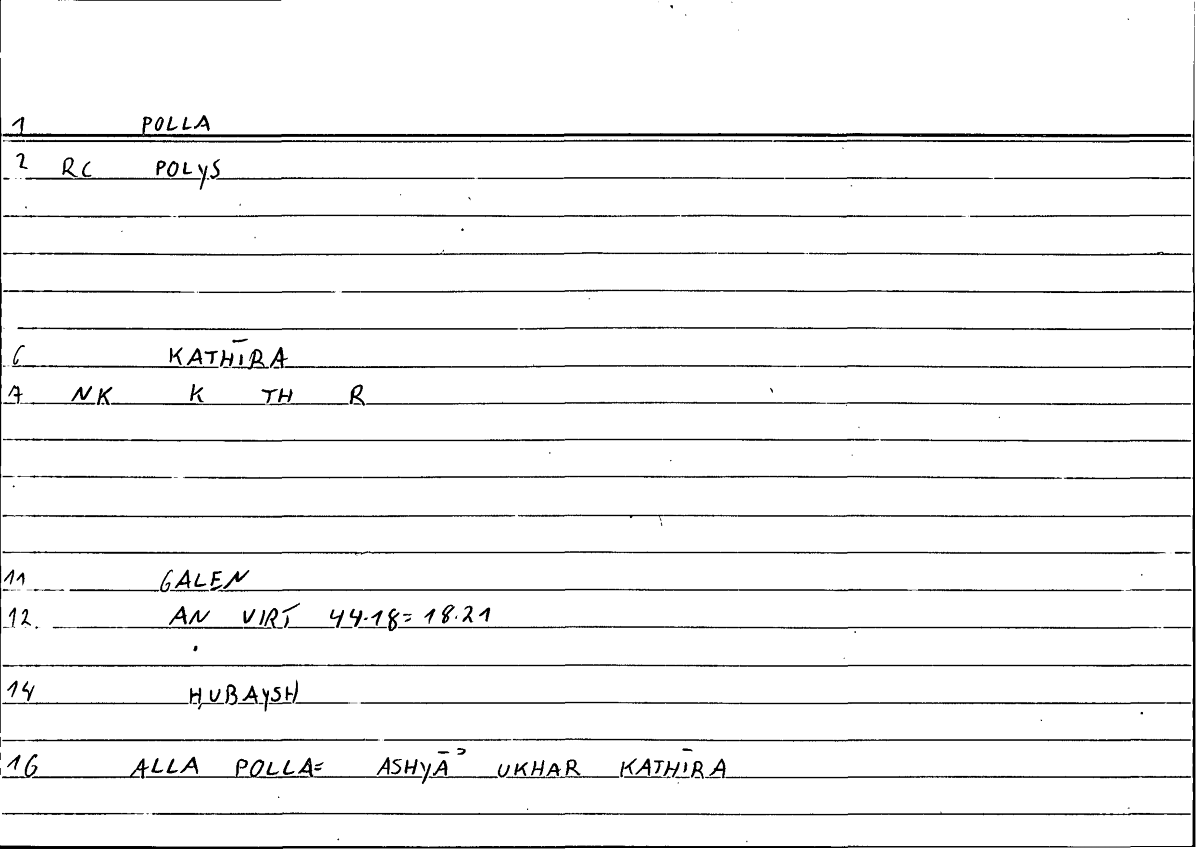 1 POLLA
2 RC POLYS
6 KATHĪRA
7 NK K TH R
11 GALEN
12. AN VIRT 44.18= 18.21
14 ḤUBAYSH
16 ALLA POLLA= ASHYĀʾ UKHAR KATHĪRA